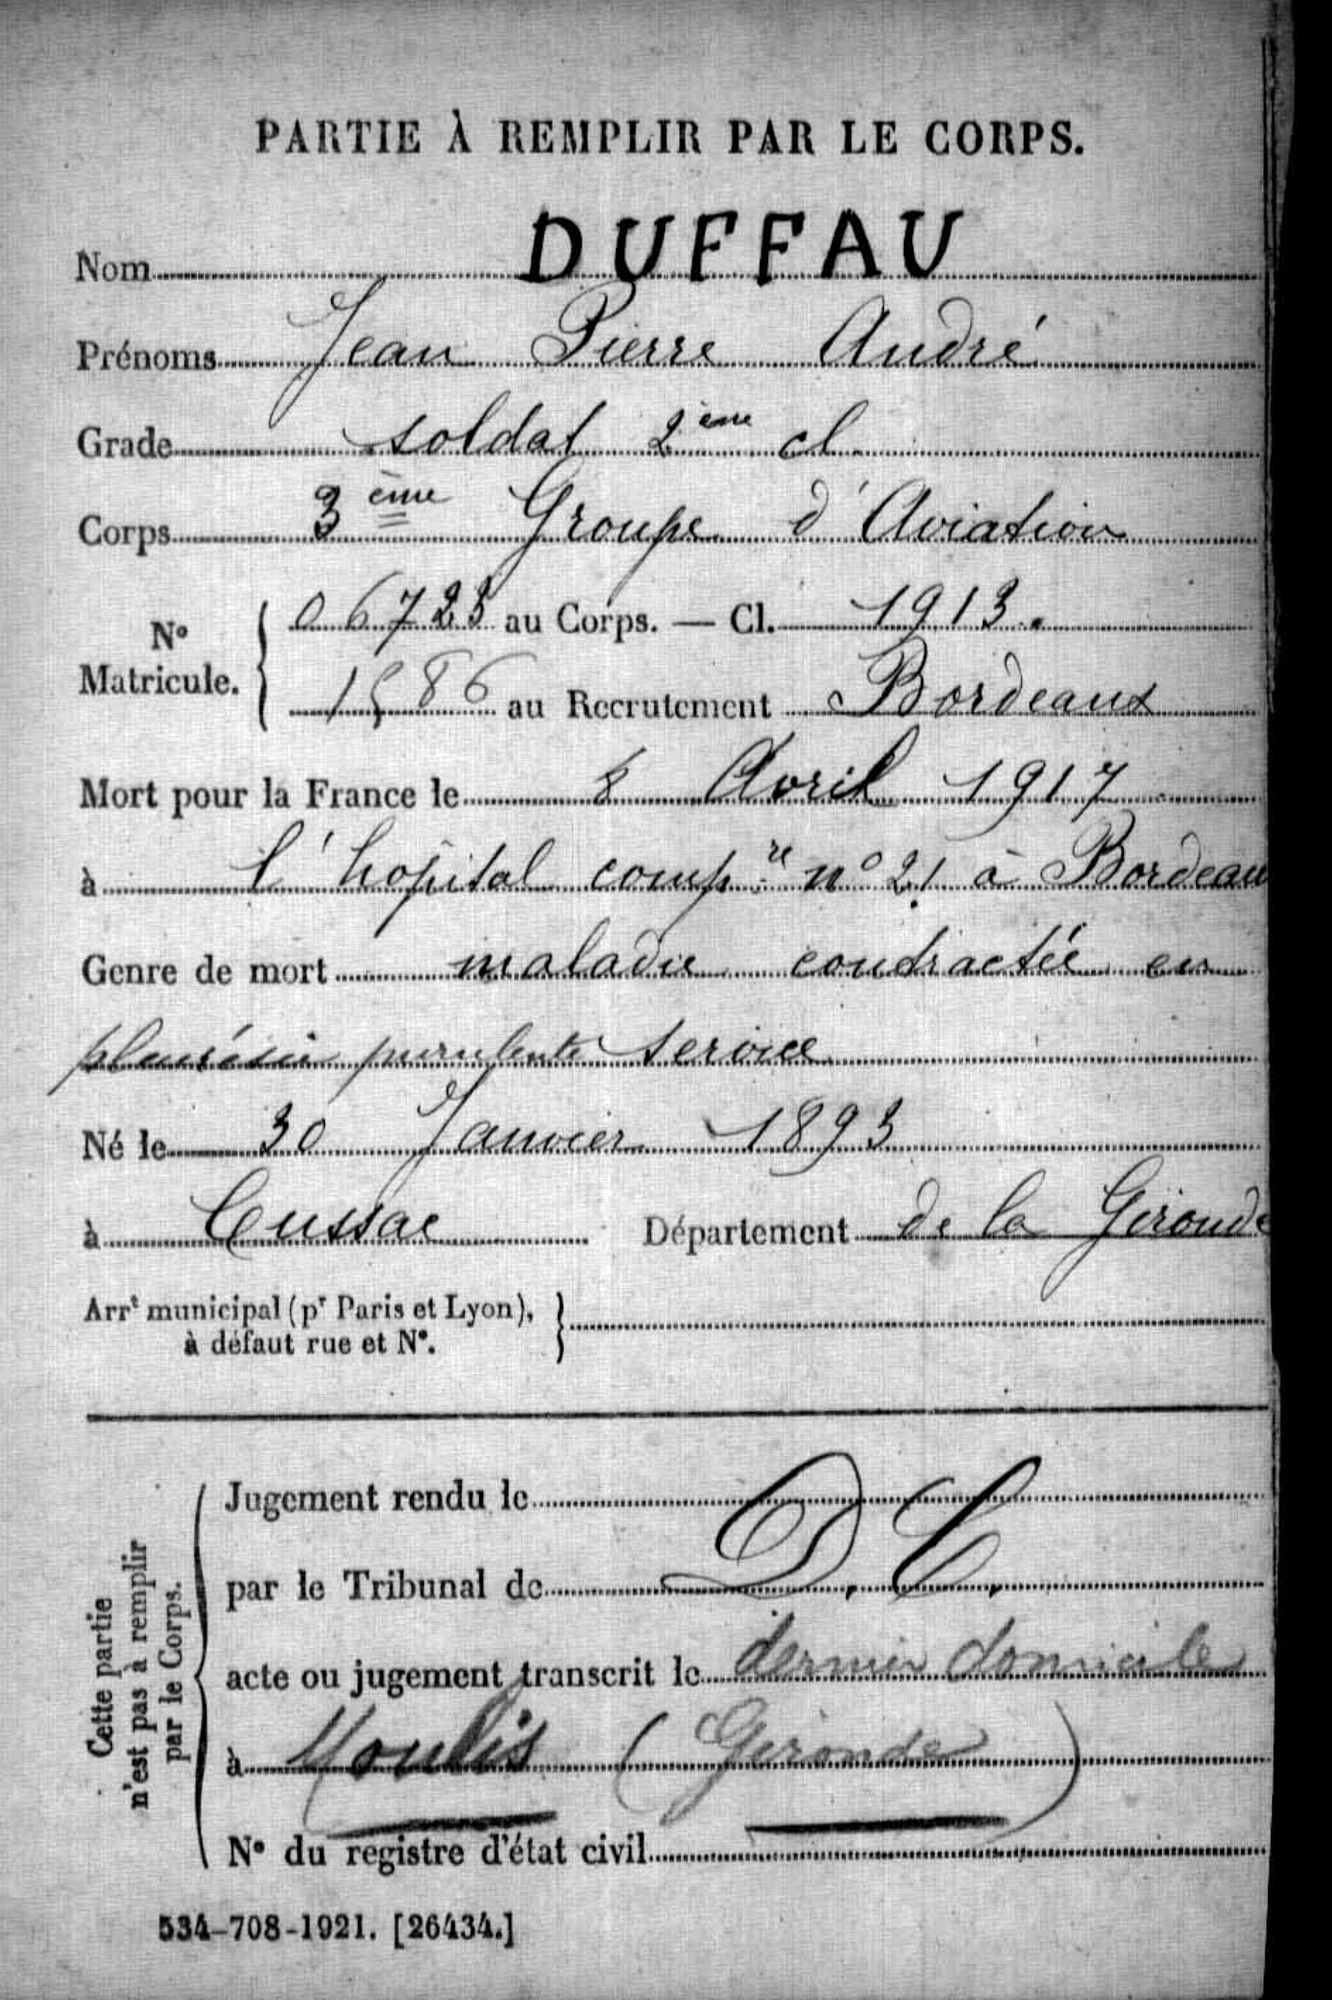 PARTIE À REMPLIR PAR LE CORPS.
Nom DUFFAU
Prénoms Jean Pierre André
Grade soldat 2ème cl.
Corps 3ème Groupe d'Aviation
N° Matricule. 06723 au Corps. — Cl. 1913.
1586 au Recrutement Bordeaux
Mort pour la France le 8 Avril 1917
à l'hopital compre n° 21 à Bordeau
Genre de mort maladie contractée en
pleurésie purulente service
Né le 30 Janvier 1893
à Cussac Département de la Gironde
Arrt municipal (pr Paris et Lyon),
à défaut rue et N°.
Cette partie
n'est pas à remplir
par le Corps.
Jugement rendu le
par le Tribunal de D. C.
acte ou jugement transcrit le dernier domicile
à Moulis (Gironde)
N° du registre d'état civil
534-708-1921. [26434.]